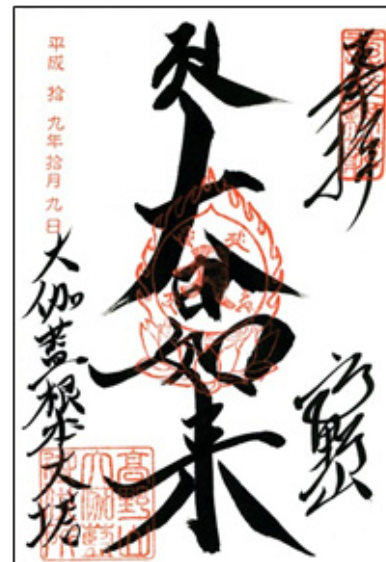 奉拝
高野山
大日如来
平成拾九年拾月九日
大伽藍根本大塔
高野山
大伽藍